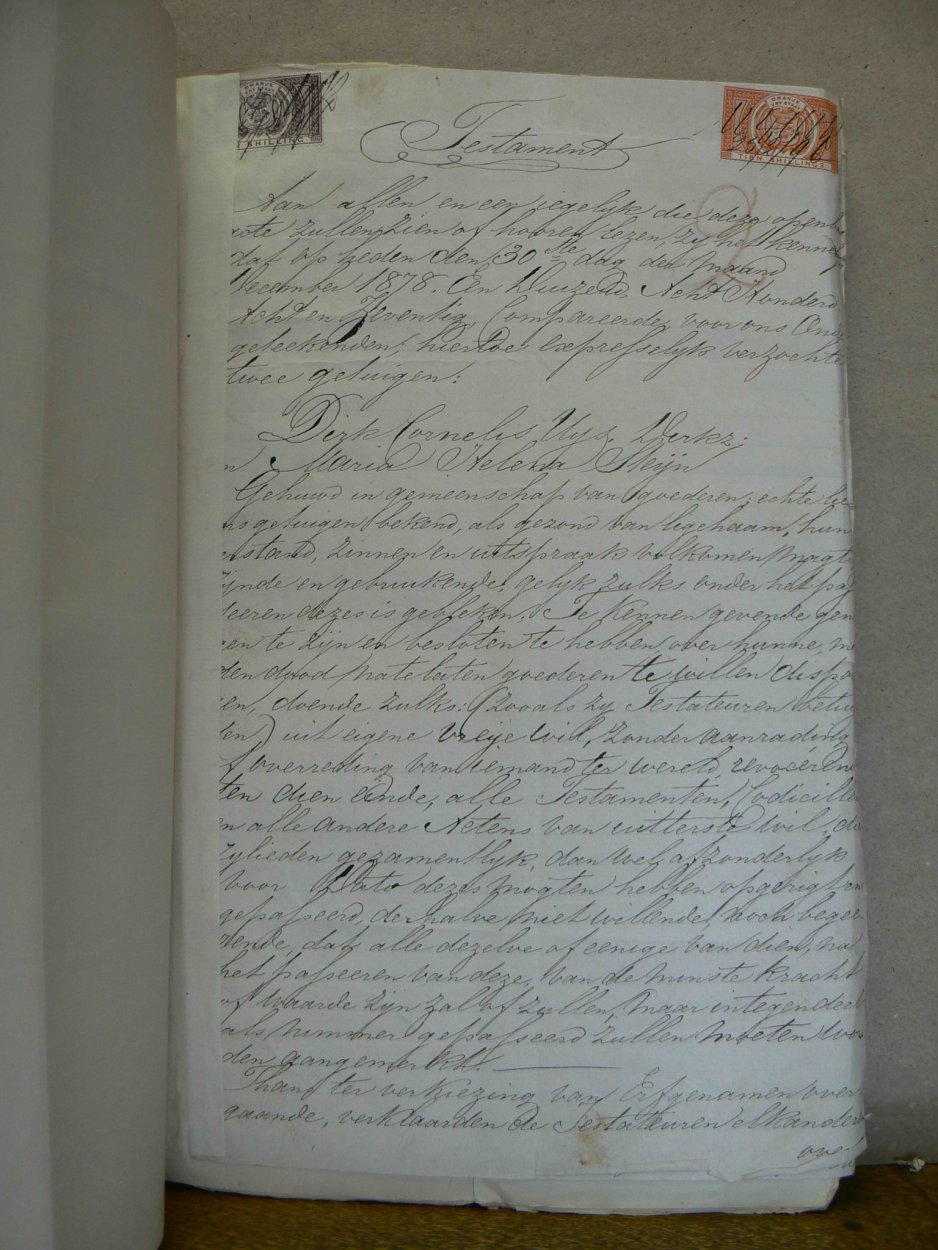 ORANJE
VRY STAAT
N SHILLING
ORANJE
VRY STAAT
TIEN SHILLINGS
Testament
2
Aan allen en een iegelyk die deze openba
acte zullen zien of hooren lezen, zy het kennel
dat op heden den 30ste dag der maand
December 1878. Een Duizend Acht Honderd
Acht en Zeventig, Compareerde voor ons Onde
geteekenden, hiertoe expresselyk verzochte
twee getuigen:
Dirk Cornelis Uys, Dirkz;
n Maria Helena Steijn
Gehuwd in gemeenschap van goederen; echte lie
ns getuigen bekend, als gezond van ligehaam, hun
erstand, zinnen en uitspraak volkomen magtig
ijnde en gebruikende, gelyk zulks onder het pas
seeren dezes is gebleken. Te kennen gevende gen
gen te zijn en besloten te hebben, over hunne, m
den dood natelaten goederen te willen dispo
en, doende zulks: (zooals zy Testateuren betui
den) uit eigene vreije wil, zonder aanrading
f overreding van iemand ter wereld, revocerend
ten dien einde, alle Testamenten, Codicille
en alle andere Actens van uitterste wil, die
zylieden gezamentlyk, dan wel afzonderlyk
voor Dato dezes mogten hebben opgerigt en
gepasseerd, derhalve niet willende noch begee
rende, dat alle dezelve of eenige van dien, na
het passeeren van deze, van de minste kracht
of waarde zijn zal of zullen, maar integendeel
als nimmer gepasseerd zullen moeten wor
den aangemerkt.
Thans ter verkiezing van Erfgenamen over
gaande, verklaarden de Testateuren elkander
over